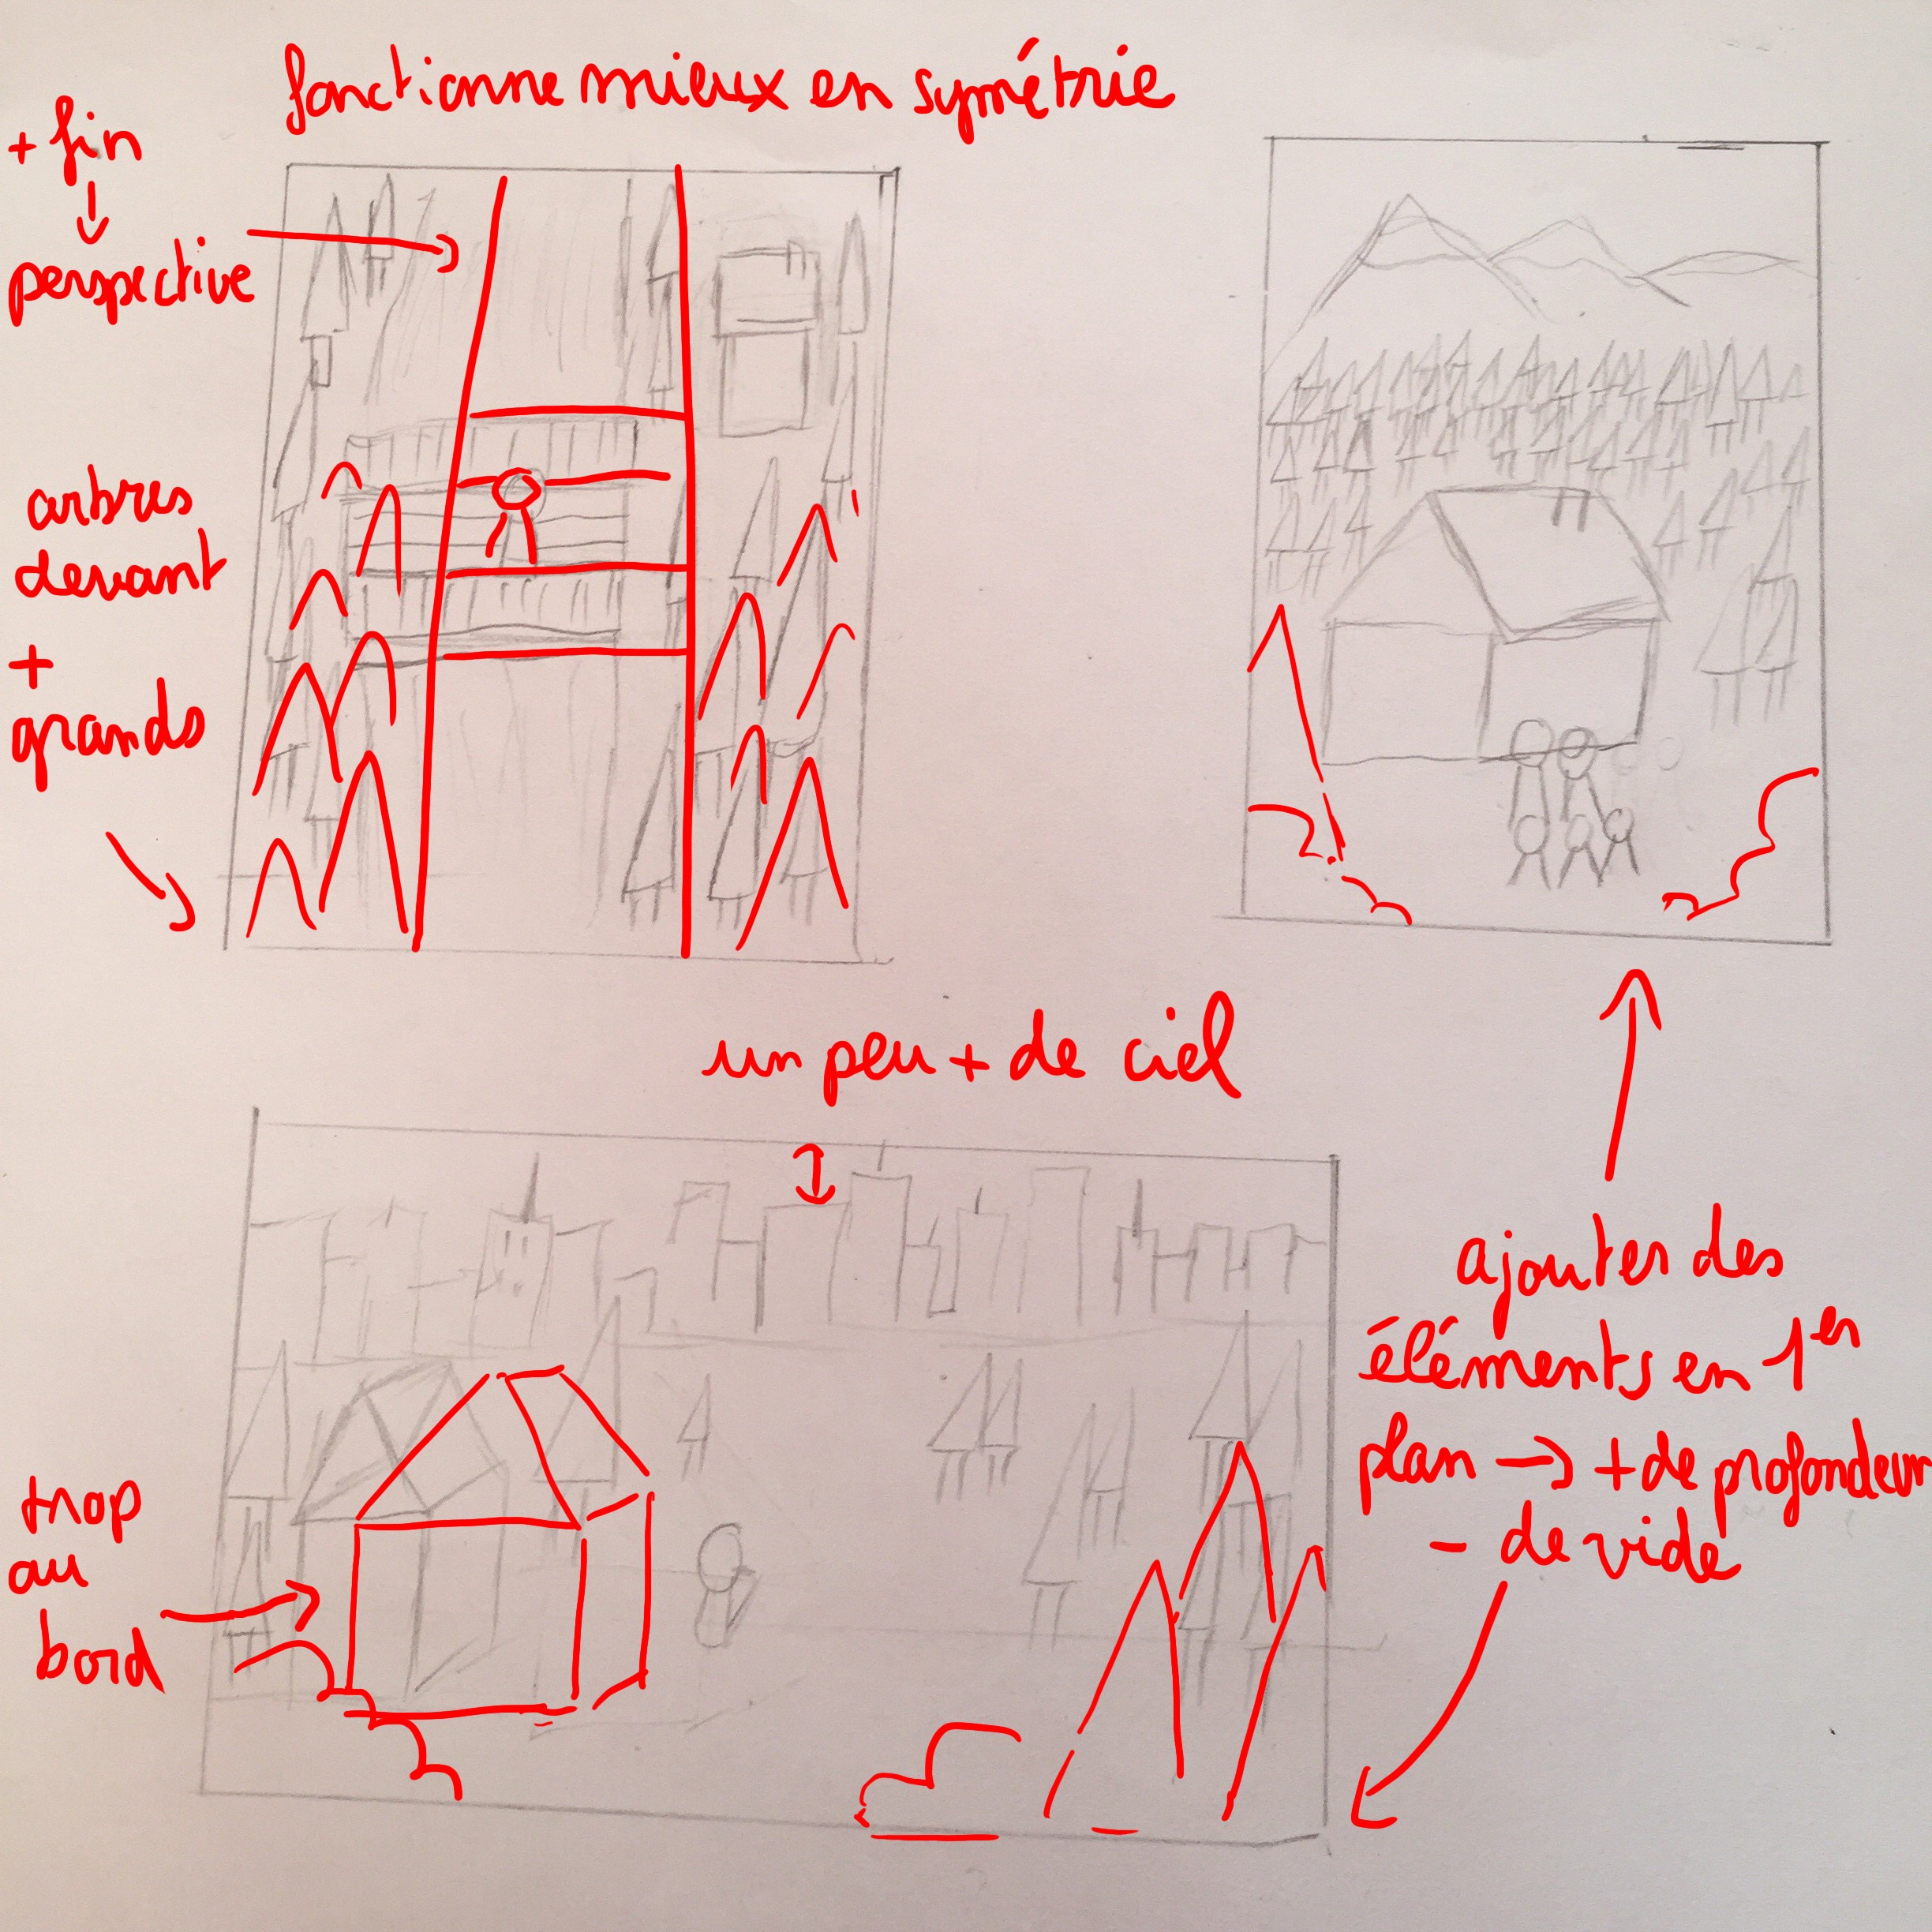 fonctionne mieux en symétrie
+ fin
↓
perspective
arbres
devant
+
grands
un peu + de ciel
trop
au
bord
ajouter des
éléments en 1er
plan → + de profondeur
- de vide